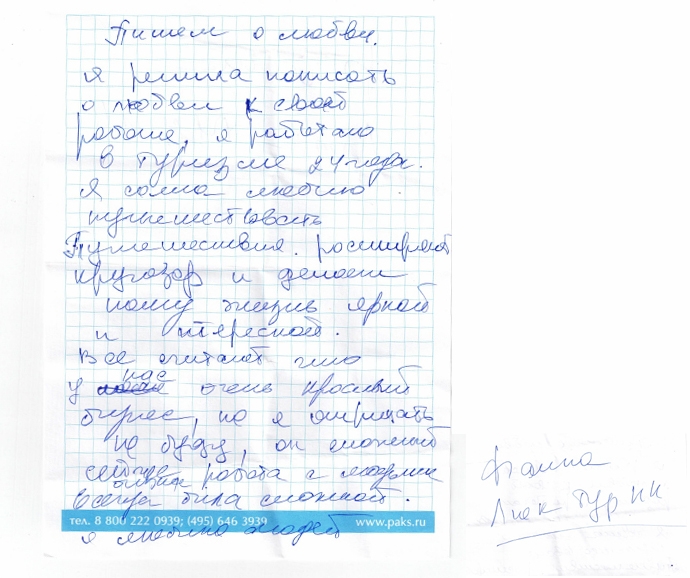 Пишем о любви.
Я решила написать
о любви к своей
работе, я работаю
в туризме 24 года.
Я сама люблю
путешествовать
Путешествия расширяют
кругозор и делают
нашу жизнь яркой
и интересной.
Все считают что
у нас очень красивый
бизнес, но я отрицать
не буду, он сложный
работа с людьми
всегда была сложной.
тел. 8 800 222 0939; (495) 646 3939 www.paks.ru
я люблю людей
Люк Тур НН